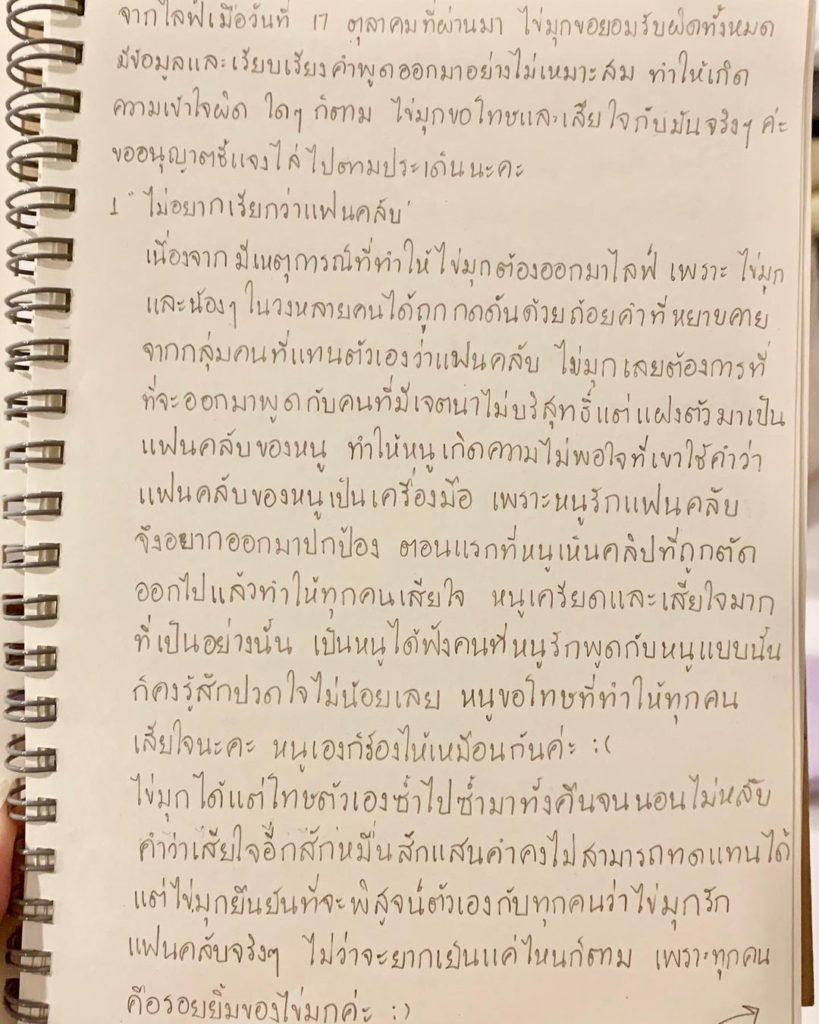 จากไลฟ์เมื่อวันที่ 17 ตุลาคมที่ผ่านมา ไข่มุกขอยอมรับผิดทั้งหมด
มีข้อมูลและเรียบเรียงคำพูดออกมาอย่างไม่เหมาะสม ทำให้เกิด
ความเข้าใจผิด ใดๆ ก็ตาม ไข่มุกขอโทษและเสียใจกับมันจริงๆ ค่ะ
ขออนุญาตชี้แจงไล่ไปตามประเด็นนะคะ
1 "ไม่อยากเรียกว่าแฟนคลับ"
เนื่องจากมีเหตุการณ์ที่ทำให้ไข่มุกต้องออกมาไลฟ์ เพราะ ไข่มุก
และน้องๆ ในวงหลายคนได้ถูกกดดันด้วยถ้อยคำที่หยาบคาย
จากกลุ่มคนที่แทนตัวเองว่าแฟนคลับ ไข่มุกเลยต้องการที่
ที่จะออกมาพูดกับคนที่มีเจตนาไม่บริสุทธิ์แต่แฝงตัวมาเป็น
แฟนคลับของหนู ทำให้หนูเกิดความไม่พอใจที่เขาใช้คำว่า
แฟนคลับของหนูเป็นเครื่องมือ เพราะหนูรักแฟนคลับ
จึงอยากออกมาปกป้อง ตอนแรกที่หนูเห็นคลิปที่ถูกตัด
ออกไปแล้วทำให้ทุกคนเสียใจ หนูเครียดและเสียใจมาก
ที่เป็นอย่างนั้น เป็นหนูได้ฟังคนที่หนูรักพูดกับหนูแบบนั้น
ก็คงรู้สึกปวดใจไม่น้อยเลย หนูขอโทษที่ทำให้ทุกคน
เสียใจนะคะ หนูเองก็ร้องไห้เหมือนกันค่ะ :(
ไข่มุกได้แต่โทษตัวเองซ้ำไปซ้ำมาทั้งคืนจนนอนไม่หลับ
คำว่าเสียใจอีกสักหมื่นสักแสนคำคงไม่สามารถทดแทนได้
แต่ไข่มุกยืนยันที่จะพิสูจน์ตัวเองกับทุกคนว่าไข่มุกรัก
แฟนคลับจริงๆ ไม่ว่าจะยากเย็นแค่ไหนก็ตาม เพราะทุกคน
คือรอยยิ้มของไข่มุกค่ะ :)